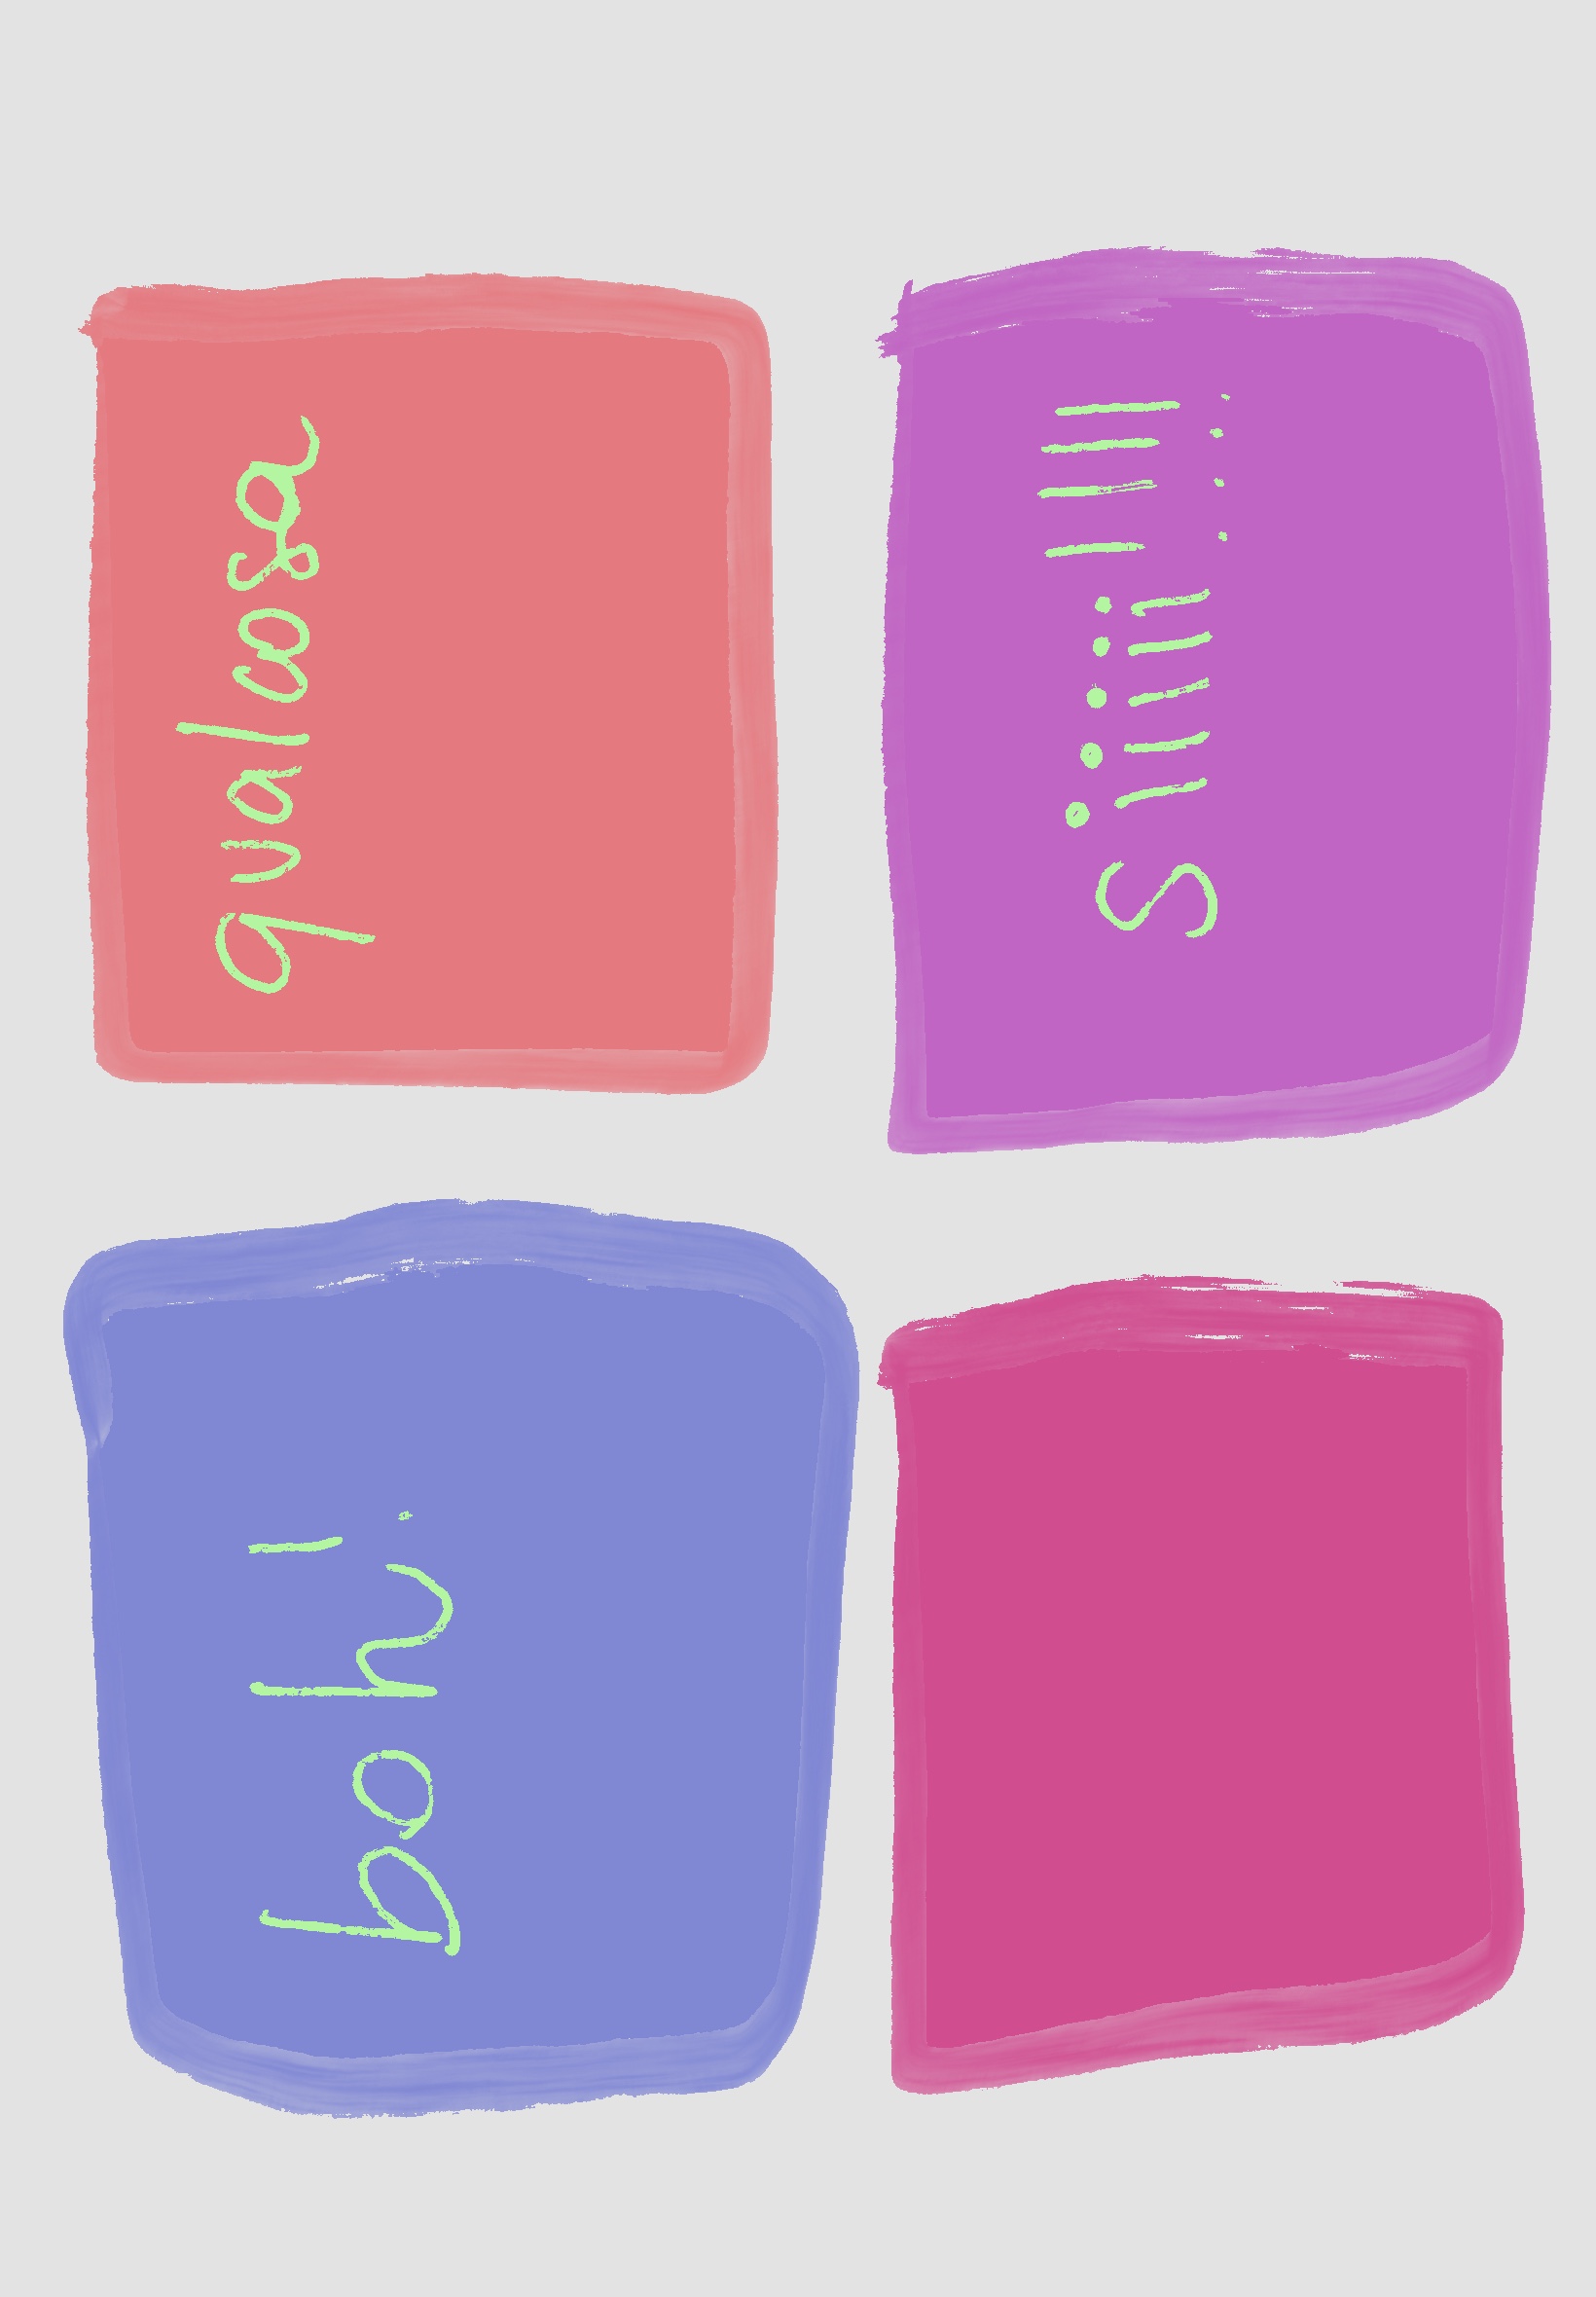 boh!
qualcosa
siiiii!!!!